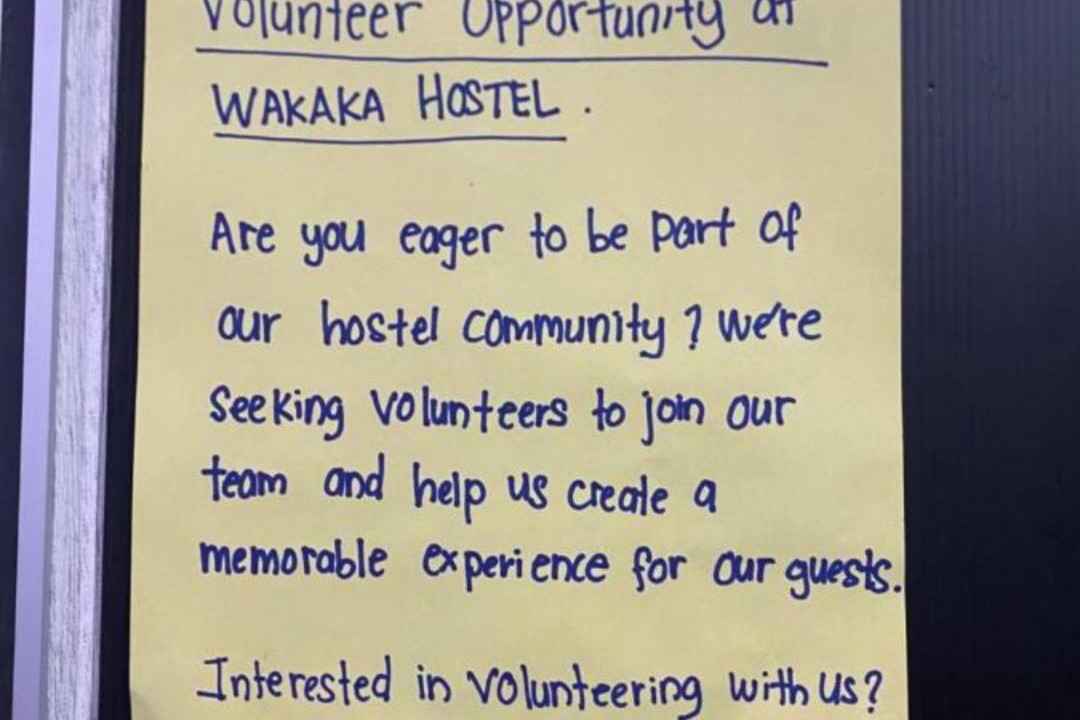 Volunteer Opportunity at
WAKAKA HOSTEL.
Are you eager to be part of
our hostel community? we're
Seeking volunteers to join our
team and help us create a
memorable experience for our guests.
Interested in volunteering with us?